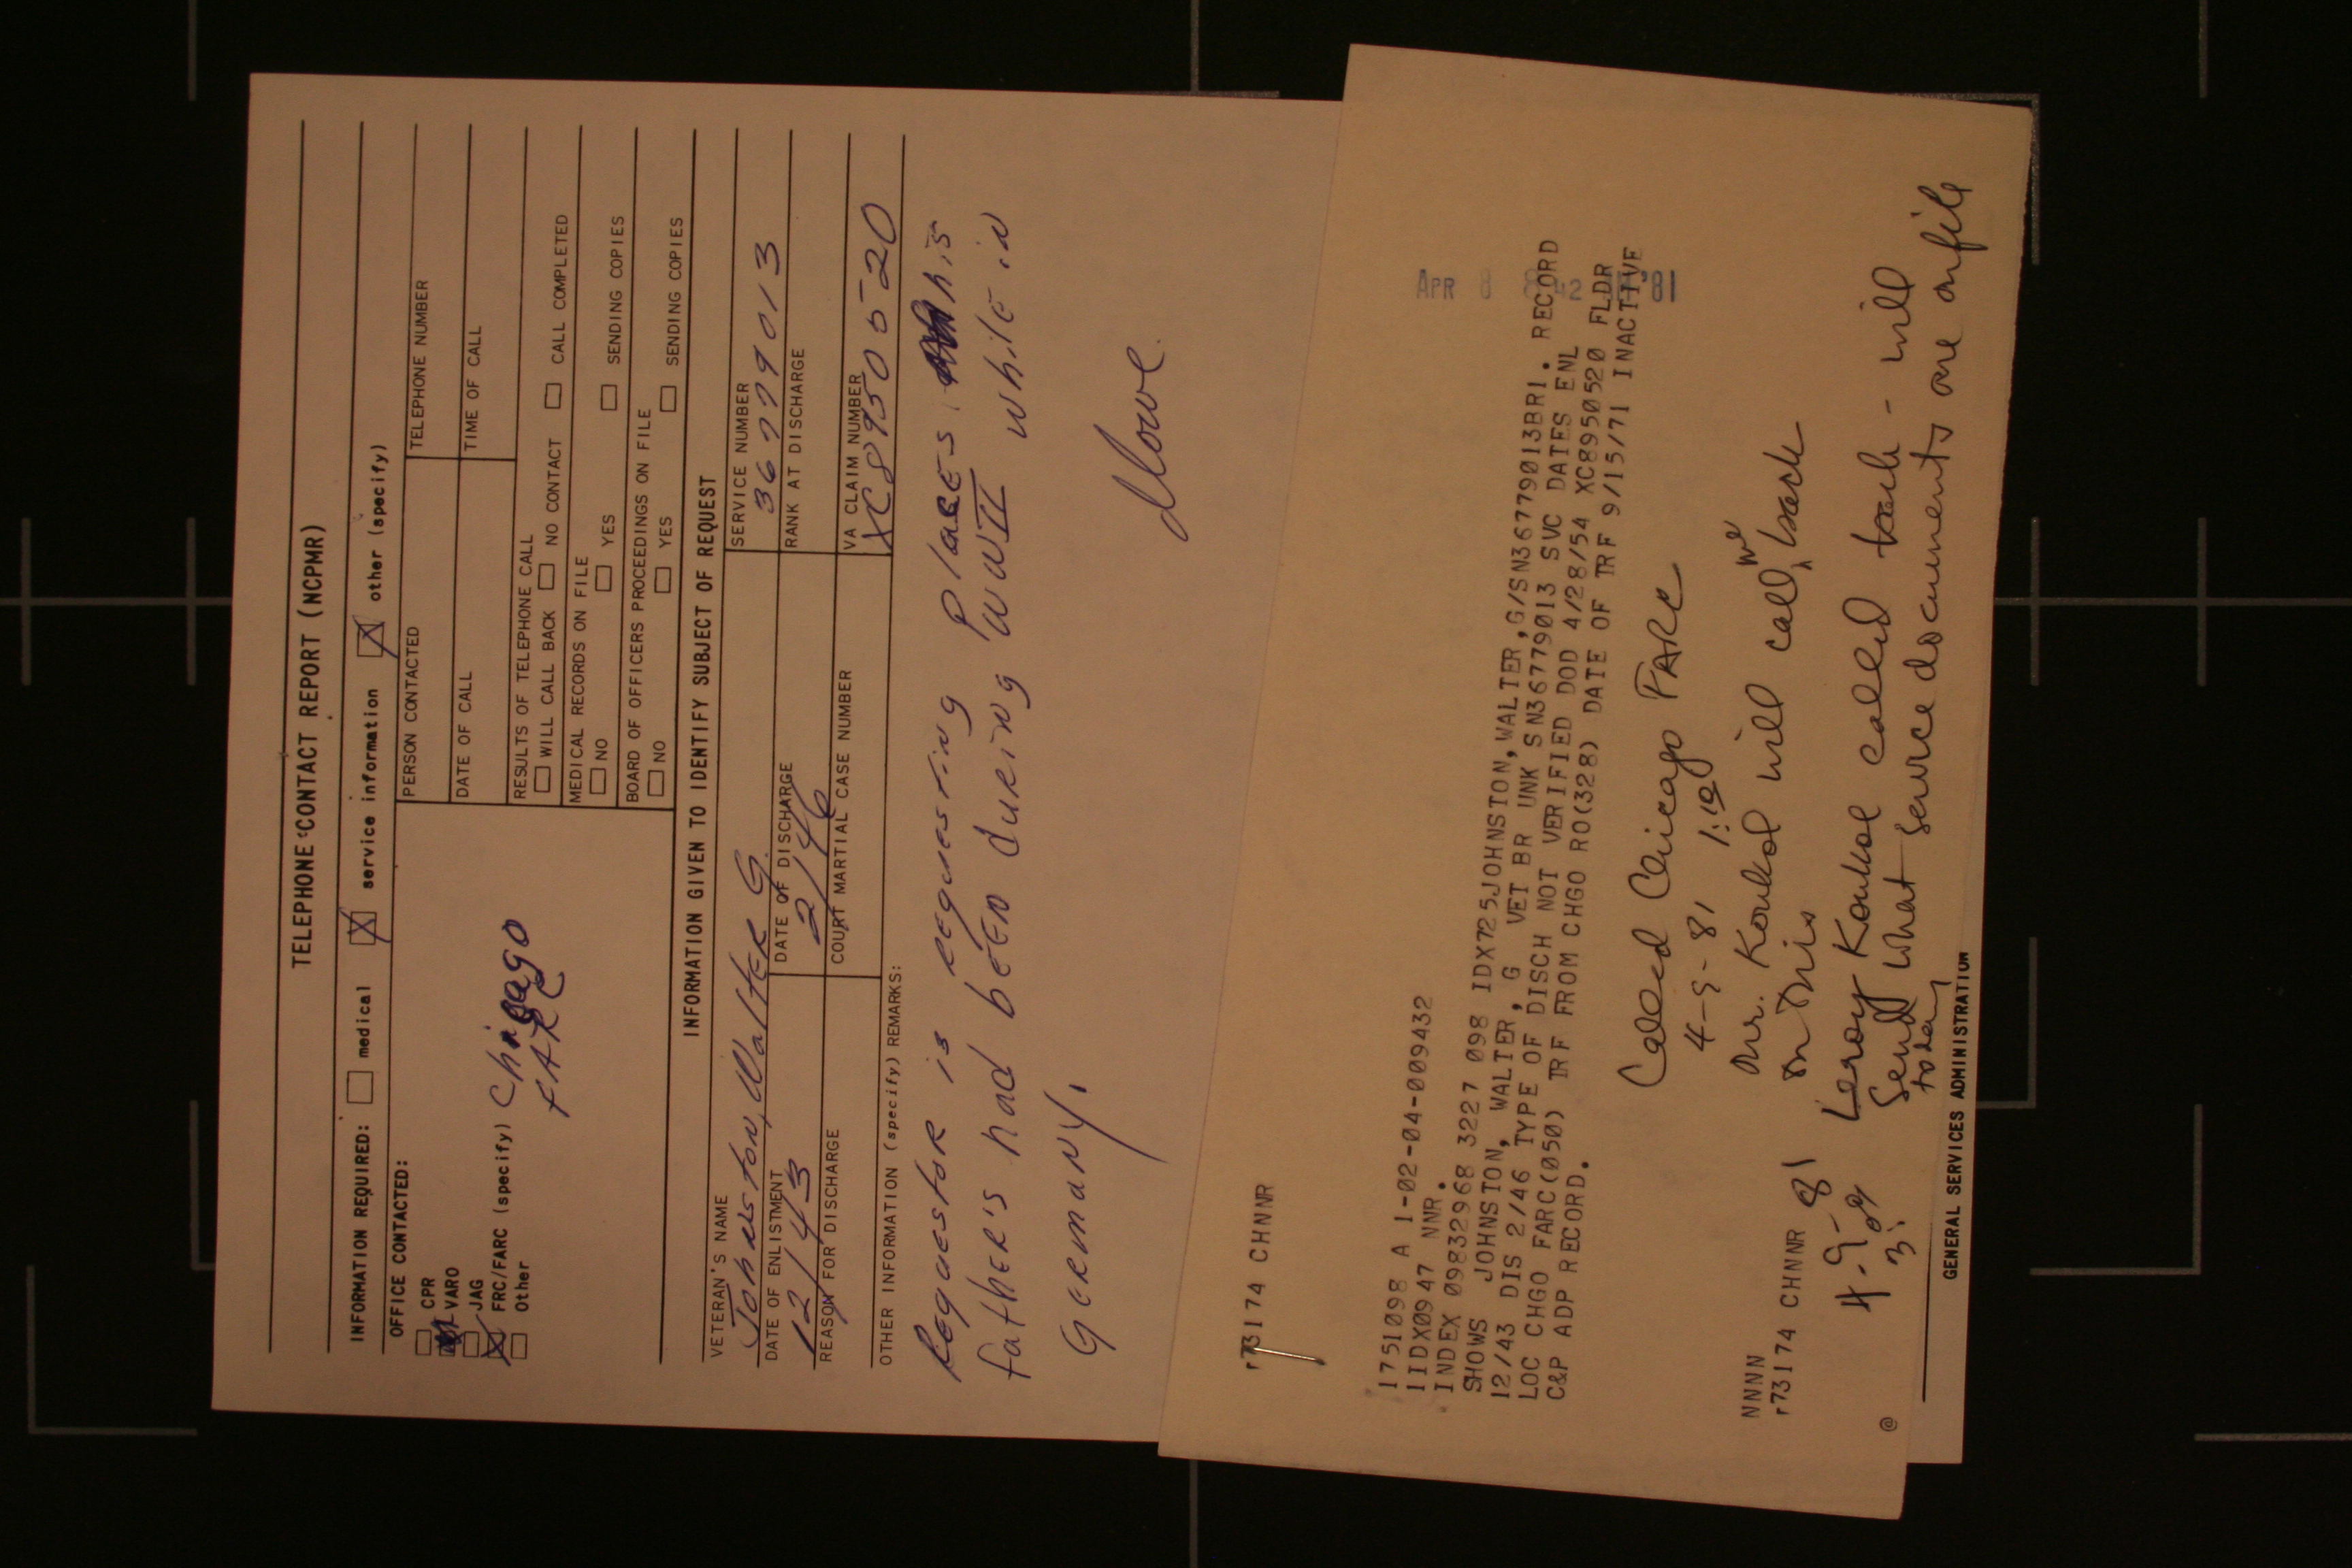 TELEPHONE CONTACT REPORT (NCPMR)
INFORMATION REQUIRED: ☐ medical ☒ service information ☒ other (specify)
OFFICE CONTACTED:
☐ CPR
VARO
☐ JAG
☒ FRC/FARC (specify) Chicago
FARC
☐ Other
PERSON CONTACTED
TELEPHONE NUMBER
DATE OF CALL
TIME OF CALL
RESULTS OF TELEPHONE CALL
☐ WILL CALL BACK ☐ NO CONTACT ☐ CALL COMPLETED
MEDICAL RECORDS ON FILE
☐ NO ☐ YES ☐ SENDING COPIES
BOARD OF OFFICERS PROCEEDINGS ON FILE
☐ NO ☐ YES ☐ SENDING COPIES
INFORMATION GIVEN TO IDENTIFY SUBJECT OF REQUEST
VETERAN'S NAME
Johnston, Walter G.
SERVICE NUMBER
36779013
DATE OF ENLISTMENT
12/43
DATE OF DISCHARGE
2/46
RANK AT DISCHARGE
REASON FOR DISCHARGE
COURT MARTIAL CASE NUMBER
VA CLAIM NUMBER
XC8950520
OTHER INFORMATION (specify) REMARKS:
Requestor is requesting places his
father's had been during WWII while in
Germany.
r73174 CHNNR
APR 8 8 42 '81
1751098 A 1-02-04-009432
1IDX0947 NNR.
INDEX 09832968 3227 098 IDX725JOHNSTON,WALTER,G/SN36779013BR1. RECORD
SHOWS JOHNSTON, WALTER, G VET BR UNK SN36779013 SVC DATES ENL
12/43 DIS 2/46 TYPE OF DISCH NOT VERIFIED DOD 4/28/54 XC8950520 FLDR
LOC CHGO FARC(050) TRF FROM CHGO RO(328) DATE OF TRF 9/15/71 INACTIVE
C&P ADP RECORD.
Called Chicago FARC
4-9-81 1:10
Mr. Koukol will call me back
on this
NNNN
r73174 CHNNR
4-9-81 Leroy Koukol called back - will
send what service documents are on file
today
GENERAL SERVICES ADMINISTRATION